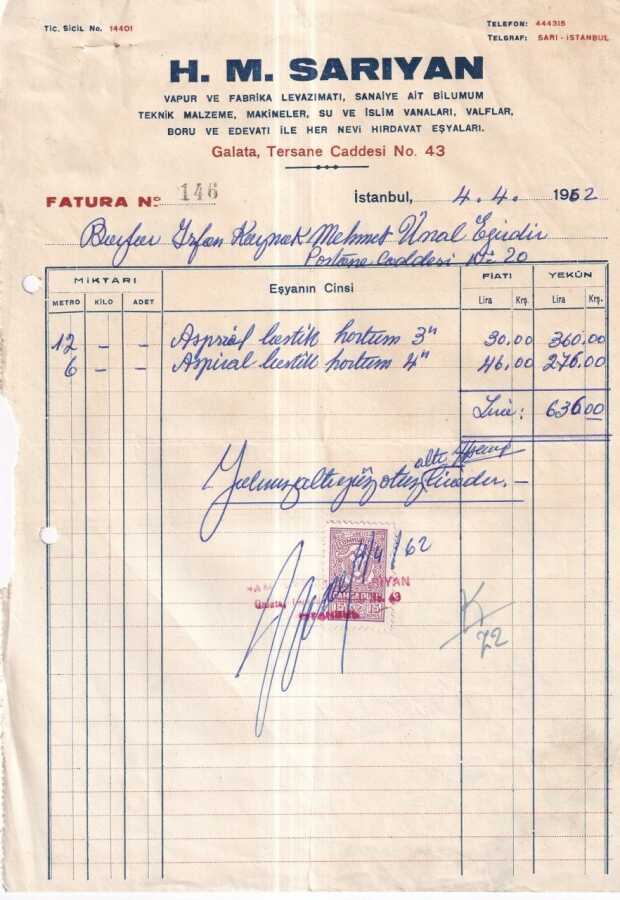 Tic. Sicil No. 14401
TELEFON: 444315
TELGRAF: SARI - İSTANBUL
H. M. SARIYAN
VAPUR VE FABRİKA LEVAZIMATI, SANAİYE AİT BİLUMUM
TEKNİK MALZEME, MAKİNELER, SU VE İSLİM VANALARI, VALFLAR,
BORU VE EDEVATI İLE HER NEVİ HIRDAVAT EŞYALARI.
Galata, Tersane Caddesi No. 43
FATURA Nº 146
İstanbul, 4.4. 1962
İrfan Kaynak Mehmet Ünal Eğirdir
Postane Caddesi No 20
MİKTARI
Eşyanın Cinsi
FİATI
YEKÛN
METRO KİLO ADET
Lira Krş. Lira Krş.
12 - - Aspiral lastik hortum 3" 30.00 360.00
6 - - Aspiral lastik hortum 4" 46.00 276.00
636.00
altı
Yalnız altıyüz otuz liradır. -
4/4/62
SARIYAN
Galata, No. 43
İSTANBUL
15 15
72